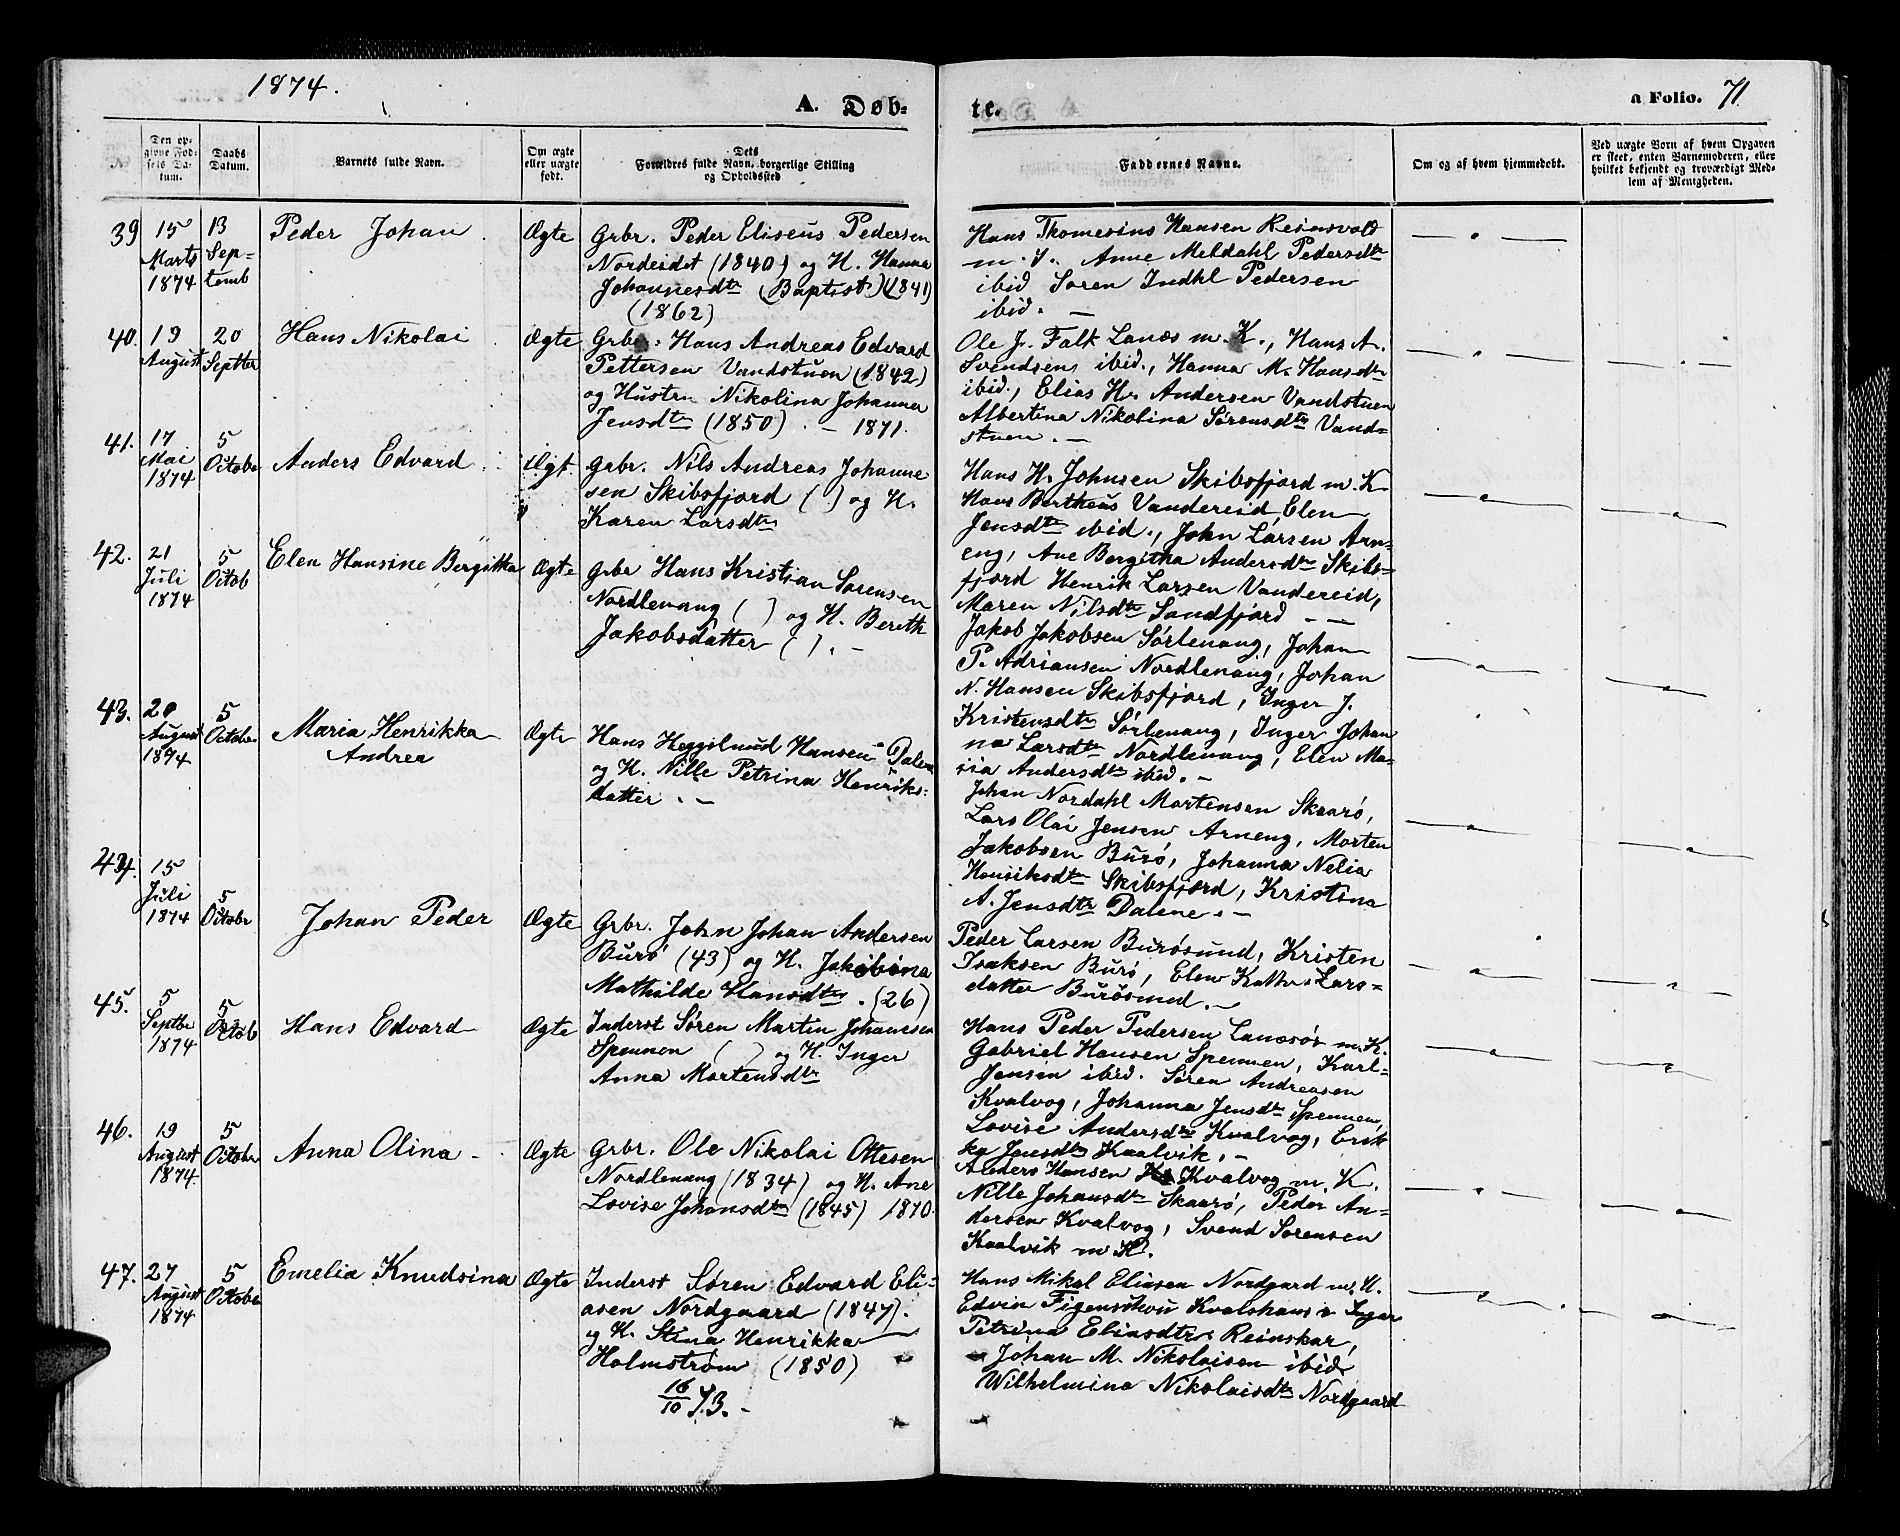 1874.
A. Døb-
te.
a Folio. 71
No.
Den op-
givne Fød-
sels Da-
tum.
Daabs
Datum.
Barnets fulde Navn.
Om ægte
eller uægte
født.
Dets
Forældres fulde Navn, borgerlige Stilling
og Opholdssted
Faddernes Navne.
Om og af hvem hjemmedøbt.
Ved uægte Born af hvem Opgaven
er skeet, enten Barnemoderen, eller
hvilket bekjendt og troværdigt Med-
lem af Menigheden.
39
15
Marts
1874
13
Sep-
temb
Peder Johan
Ægte
Grbr. Peder Eliseus Pedersen
Nordeidet (1840) og H. Hanna
Johannesdtr (Baptist) (1841)
(1862)
Hans Thomesius Hansen Reinsvold
m. H. Anne Meldahl Pedersdtr
ibid Søren Indkl Pedersen
ibid. —
40.
19
August
20
Septter
Hans Nikolai
Ægte
Grbr. Hans Andreas Edvard
Pettersen Vandstuen (1842)
og Hustru Nikolina Johanna
Jensdtr (1850). — 1871.
Ole J. Falk Lanæs m. K., Hans A.
Svendsen ibid., Hanna M. Hansdtr
ibid., Elias H. Andersen Vandstuen
Albertina Nikolina Sørensdtr Vand-
stuen. —
41.
17
Mai
1874
5
Octobr
Anders Edvard
Ægt.
Grbr. Nils Andreas Johanne
sen Skibsfjord ( ) og H.
Karen Larsdtr
Hans H. Johnsen Skibsfjord m. K
Hans Bertheus Vandereid, Elen
Jensdtr ibid., John Larsen Arn-
eng, Ane Bergitha Andersdtr Skibs-
fjord Henrik Larsen Vandereid,
Maren Nilsdtr Sandfjord — —
42.
21
Juli
1874
5
Octob
Elen Hansine Bergitta
Ægte
Grbr Hans Kristian Sørensen
Nordlenang ( ) og H. Bereth
Jakobsdatter ( ). —
Jakob Jakobsen Sørlenang, Johan
P. Adriansen Nordlenang, Johan
N. Hansen Skibsfjord, Inger J.
Kristensdtr Sørlenang, Inger Johan
na Larsdtr Nordlenang, Elen Ma-
ria Andersdtr ibid. —
43.
20
August
1874
5
October
Maria Henrikka
Andrea
Ægte
Hans Heggelund Hansen Dalen
og H. Nille Petrina Henriks-
datter. —
Johan Nordahl Mortensen Skaarø,
Lars Olai Jensen Arneng, Morten
Jakobsen Burø, Johanna Nelia
Henriksdtr Skibsfjord, Kristina
A. Jensdtr Dalene. —
44.
15
Juli
1874
5
Octobr
Johan Peder
Ægte
Grbr. John Johan Andersen
Burø (43) og H. Jakobina
Mathilde Hansdtr. (26)
Peder Larsen Burøsund, Kristen
Isaksen Burø, Elen Kathr. Lars-
datter Burøsund. —
45.
5
Septbr
1874
5
Octob
Hans Edvard
Ægte
Inderst Søren Martin Johansen
Spennen ( ) og H. Inger
Anna Mortensdtr
Hans Peder Pedersen Lanæsør m. K.
Gabriel Hansen Spennen, Karl
Jensen ibid. Søren Andreasen
Kvalvog, Johanna Jensdtr Spennen,
Lovise Andersdtr Kvalvog, Erik
ka Jensdtr Kaalvik. —
46.
19
August
1874
5
Octobr
Anna Olina
Ægte
Grbr. Ole Nikolai Ottesen
Nordlenang (1834) og H. Ane
Lovise Johansdtr (1845) 1870.
Anders Hansen Kvalvog m. K.
Nille Johansdtr Skaarø, Peder An-
dersen Kvalvog, Svend Sørensen
Kaalvik m K.
47.
27
August
1874
5
October
Emelia Knudsina
Ægte
Inderst Søren Edvard Eli-
asen Nordgaard (1847).
og H. Stina Henrikka
Holmstrøm (1850)
16/10 73. —
Hans Mikal Eliasen Nordgaard m. H.
Edvin Figenschou Kvalshaus Inger
Petrina Eliasdtr Reinskar,
Johan M. Nikolaisen ibid
Wilhelmina Nikolaisdtr Nordgaard